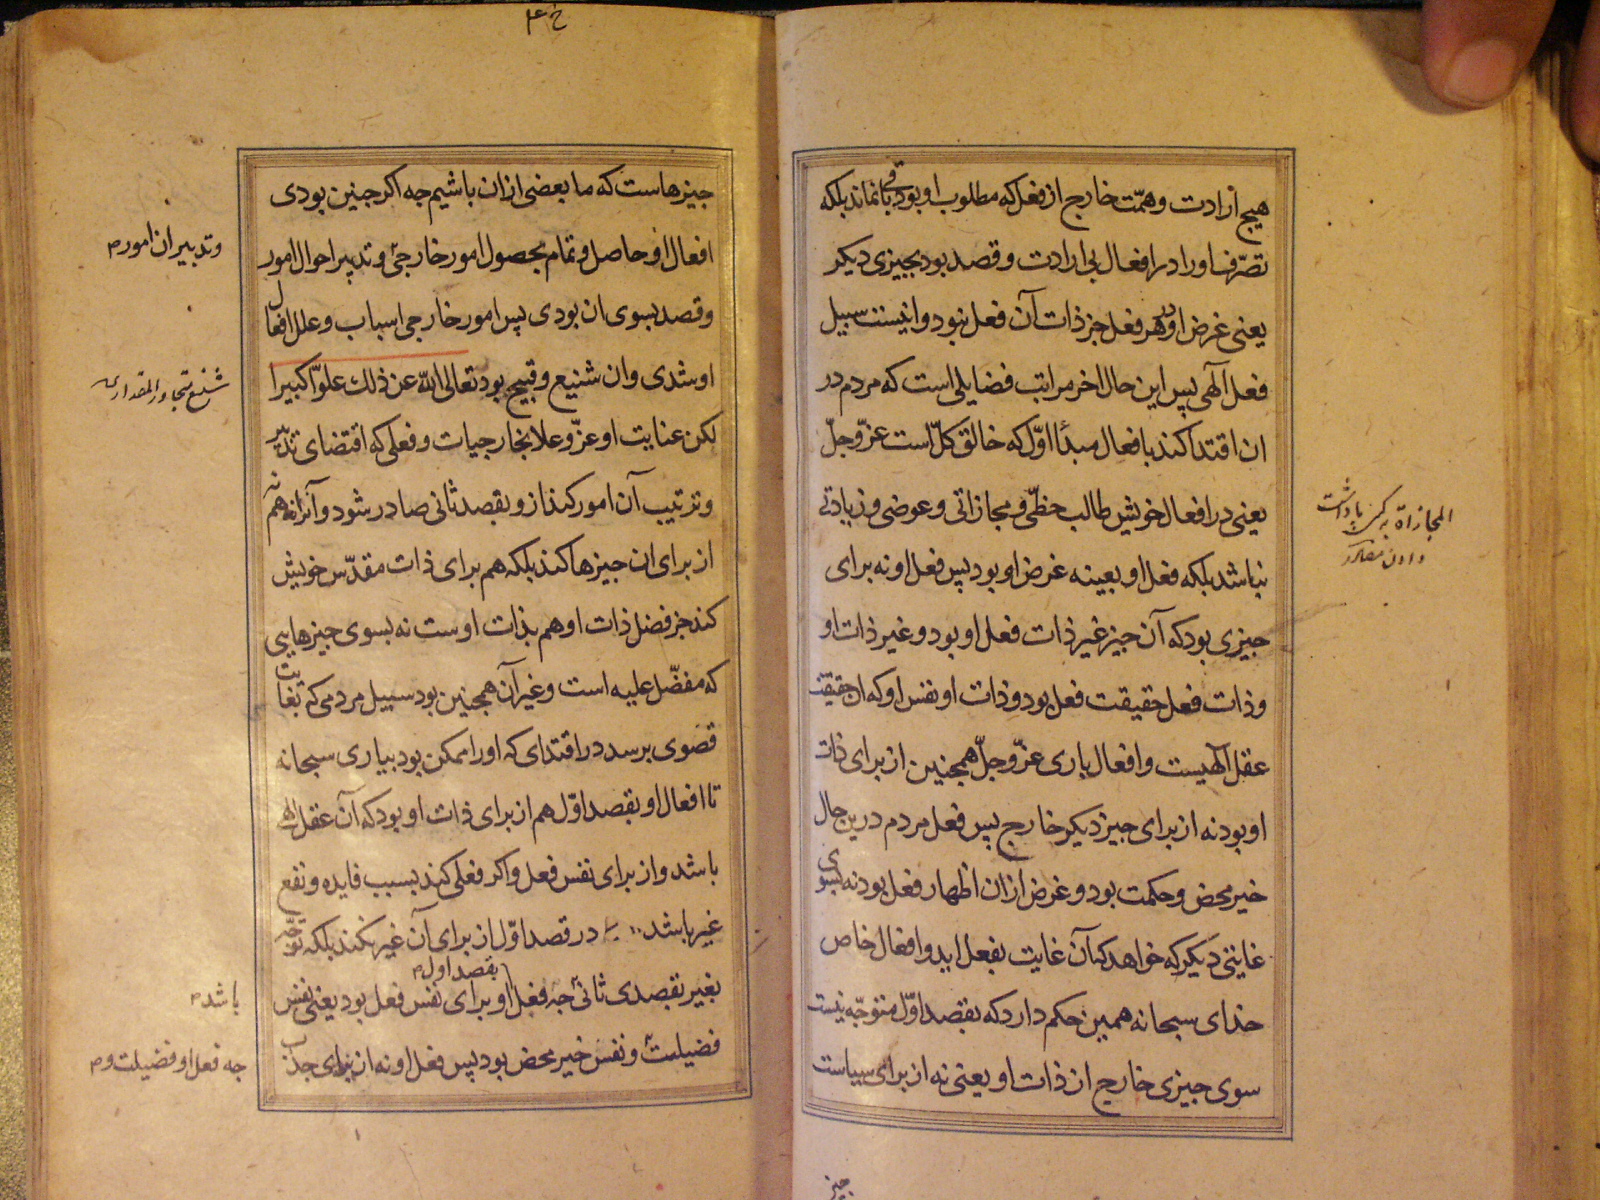 هیچ ارادت وهمّت خارج از فعل که مطلوب او بود باقی نماند بلکه
تصرّف او را در افعال بی ارادت و قصد بود بچیزی دیکر
یعنی غرض او در هر فعل جز ذات آن فعل نبود و اینست سبیل
فعل آلهی پس این حال اخر مراتب فضایلی است که مردم در
ان اقتدا کند بافعال مبدأ اوّل که خالق کلّ است عزّ و جلّ
یعنی در افعال خویش طالب حظّی و مجازاتی و عوضی و زیادتی
نباشد بلکه فعل او بعینه غرض او بود پس فعل او نه برای
جیزی بود که آن جیز غیر ذات فعل او بود و غیر ذات او
و ذات فعل حقیقت فعل بود و ذات او نفس او که ان حقیقت
عقل آلهیست و افعال باری عزّ و جلّ همجنین از برای ذات
او بود نه از برای جیز دیکر خارج پس فعل مردم درین حال
خیر محض و حکمت بود و غرض ازان اظهار فعل بود نه بسوی
غایتی دیکر که خواهد که آن غایت بفعل اید و افعال خاص
خدای سبحانه همین حکم دارد که بقصد اوّل متوجّه نیست
سوی جیزی خارج از ذات او یعنی نه از برای سیاست
المجازاة
پاداشت
دادن
جیز
جیزهاست که ما بعضی ازان باشیم جه اکر جنین بودی
افعال او حاصل و تمام بحصول امور خارجی و تدبیر احوال امور
و قصد بسوی ان بودی پس امور خارجی اسباب و علل افعال
او شدی وان شنیع و قبیح بود تعالی الله عن ذلك علوّا کبیرا
لکن عنایت او عزّ و علا بخارجیات و فعلی که اقتضای تدبیر
و ترتیب آن امور کند ازو بقصد ثانی صادر شود و آنرا نه هم
از برای ان جیزها کند بلکه هم برای ذات مقدّس خویش
کند جز فضل ذات او هم بذات اوست نه بسوی جیزهایی
که مفضّل علیه است و غیر آن همجنین بود سبیل مردمی که بغایت
قصوی برسد در اقتدای که او را ممکن بود بباری سبحانه
تا افعال او بقصد اوّل هم از برای ذات او بود که آن عقل الهی
باشد و از برای نفس فعل و اکر فعلی کند بسبب فایده و نفع
غیر باشد در قصد اوّل از برای آن غیر نکند بلکه توجّه
بقصد اول م
بغیر بقصدی ثانی جه فعل او برای نفس فعل بود یعنی نفس
فضیلت و نفس خیر محض بود پس فعل او نه از برای جذب
و تدبیر ان امور م
شنع
باشد م
جه فعل او فضیلت و م